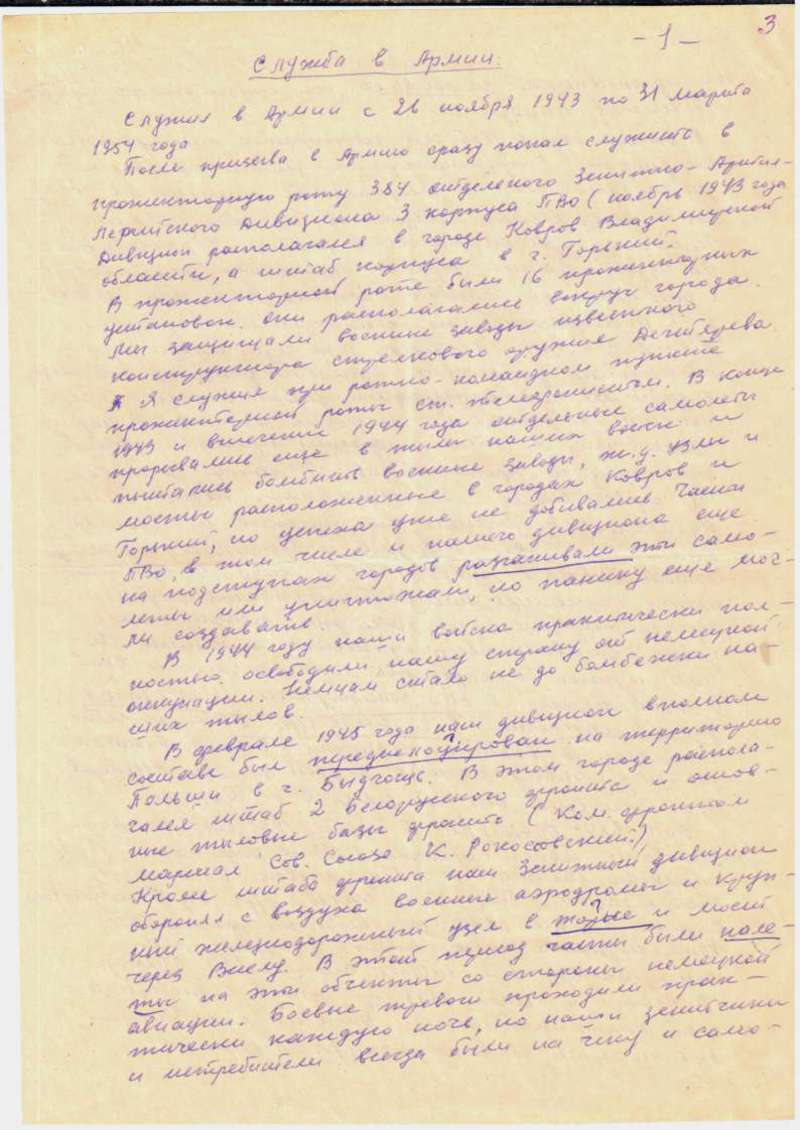 3
- 1 -
Служба в Армии.
Служил в Армии с 26 ноября 1943 по 31 марта
1954 года
После призыва в Армию сразу попал служить в
прожекторную роту 384 отдельного Зенитно-Артил-
лерийского Дивизиона 3 корпуса ПВО (ноябрь 1943 года
Дивизион располагался в городе Ковров Владимирской
области, а штаб корпуса в г. Горький.
В прожекторной роте были 16 прожекторных
установок. они располагались вокруг города.
Мы защищали военные заводы известного
конструктора стрелкового оружия Дегтярева.
Я служил при ротно-командном пункте
прожекторной роты ст. телефонистом. В конце
1943 и в течении 1944 года отдельные самолеты
прорывались еще в тылы наших войск и
пытались бомбить военные заводы, ж.д. узлы и
мосты расположенные в городах Ковров и
Горький, но успеха уже не добивались. Части
ПВО, в том числе и нашего дивизиона еще
на подступах городов разганивали эти само-
леты или уничтожали, но панику еще мог-
ли создавать.
В 1944 году наши войска практически пол-
ностью освободили нашу страну от немецкой
оккупации. Немцам стало не до бомбежки на-
ших тылов.
В феврале 1945 года наш дивизион в полном
составе был передислоцирован на территорию
Польши в г. Быдгощь. В этом городе распола-
гался штаб 2 Белорусского фронта и основ-
ные тыловые базы фронта (Ком. фронтом
маршал Сов. Союза К. Рокосовский)
Кроме штаба фронта наш Зенитный дивизион
оборонял с воздуха военные аэродромы и круп-
ный железнодорожный узел в и мост
через Вислу. В этот период часты были нале-
ты на эти объекты со стороны немецкой
авиации. Боевые тревоги проходили прак-
тически каждую ночь, но наши зенитчики
и истребители всегда были на чеку и само-